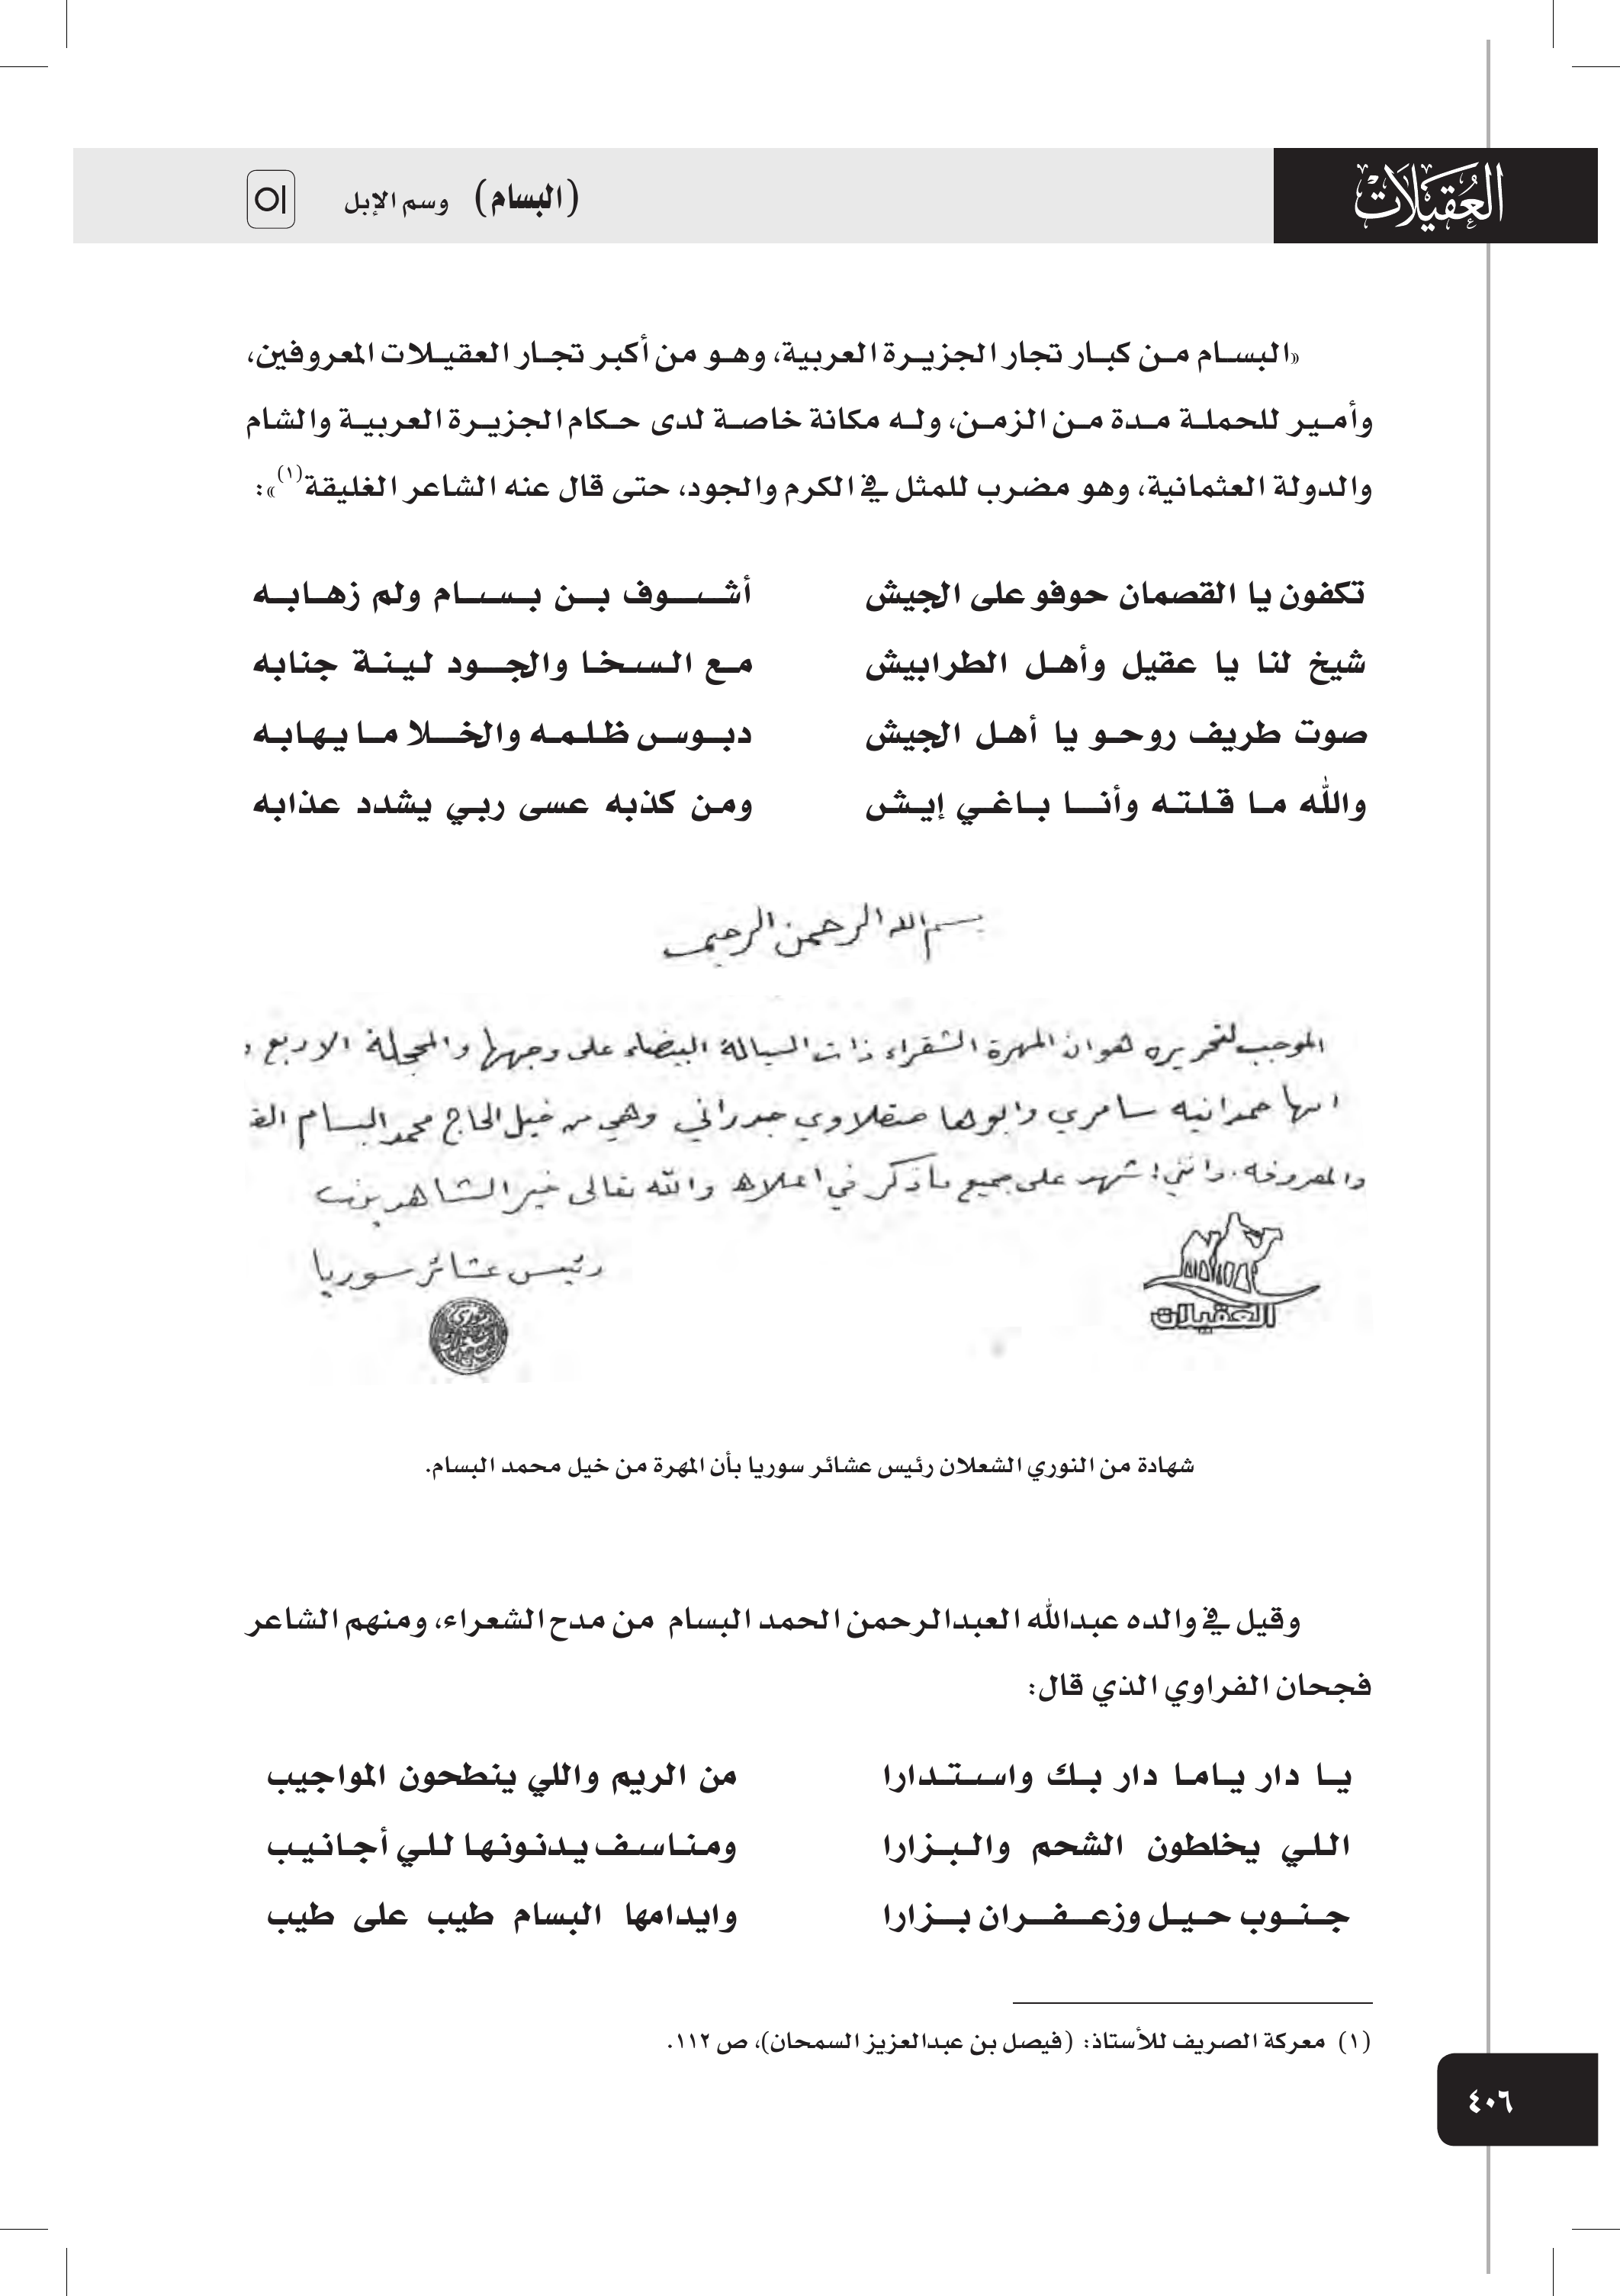 العُقَيْلَاتْ
(البسام) وسم الإبل
«البسام من كبار تجار الجزيرة العربية، وهو من أكبر تجار العقيلات المعروفين،
وأمير للحملة مدة من الزمن، وله مكانة خاصة لدى حكام الجزيرة العربية والشام
والدولة العثمانية، وهو مضرب للمثل في الكرم والجود، حتى قال عنه الشاعر الغليقة(١)»:
تكفون يا القصمان حوفو على الجيش أشوف بن بسام ولم زهابه
شيخ لنا يا عقيل وأهل الطرابيش مع السخا والجود لينة جنابه
صوت طريف روحو يا أهل الجيش دبوس ظلمه والخلا ما يهابه
والله ما قلته وأنا باغي إيش ومن كذبه عسى ربي يشدد عذابه
بسم الله الرحمن الرحيم
الموجب لتحريره هو ان المهرة الشقراء ذات السيالة البيضاء على وجهها والمحجلة الاربع و
امها حمدانيه سامري وابوها صقلاوي جدراني وهي من خيل الحاج محمد البسام
والمعروفه. وانني اشهد على جميع ماذكر في اعلاه والله تعالى خير الشاهدين
رئيس عشائر سوريا
العقيلات
شهادة من النوري الشعلان رئيس عشائر سوريا بأن المهرة من خيل محمد البسام.
وقيل في والده عبدالله العبدالرحمن الحمد البسام من مدح الشعراء، ومنهم الشاعر
فجحان الفراوي الذي قال:
يا دار ياما دار بك واستدارا من الريم واللي ينطحون المواجيب
اللي يخلطون الشحم والبزارا ومناسف يدنونها للي أجانيب
جنوب حيل وزعفران بزارا وايدامها البسام طيب على طيب
(١) معركة الصريف للأستاذ: (فيصل بن عبدالعزيز السمحان)، ص ١١٢.
٤٠٦